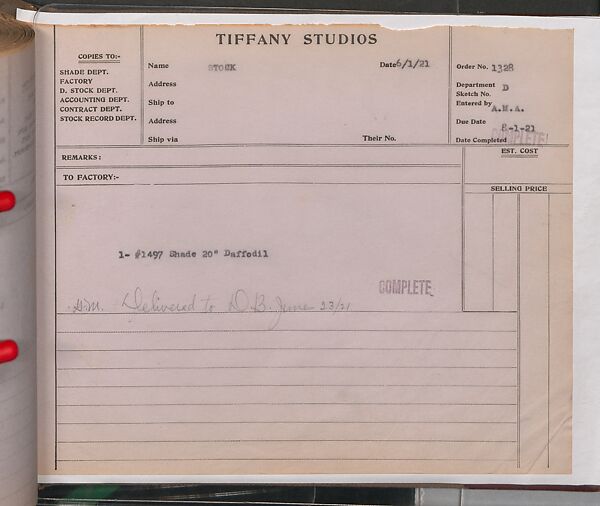 TIFFANY STUDIOS
COPIES TO:-
SHADE DEPT.
FACTORY
D. STOCK DEPT.
ACCOUNTING DEPT.
CONTRACT DEPT.
STOCK RECORD DEPT.
Name STOCK Date 6/1/21
Address
Ship to
Address
Ship via Their No.
Order No. 1328
Department D
Sketch No.
Entered by A.M.A.
Due Date 8-1-21
Date Completed COMPLETE!
REMARKS:
EST. COST
TO FACTORY:-
SELLING PRICE
1- #1497 Shade 20" Daffodil
COMPLETE
Delivered to D.B. June 23/21